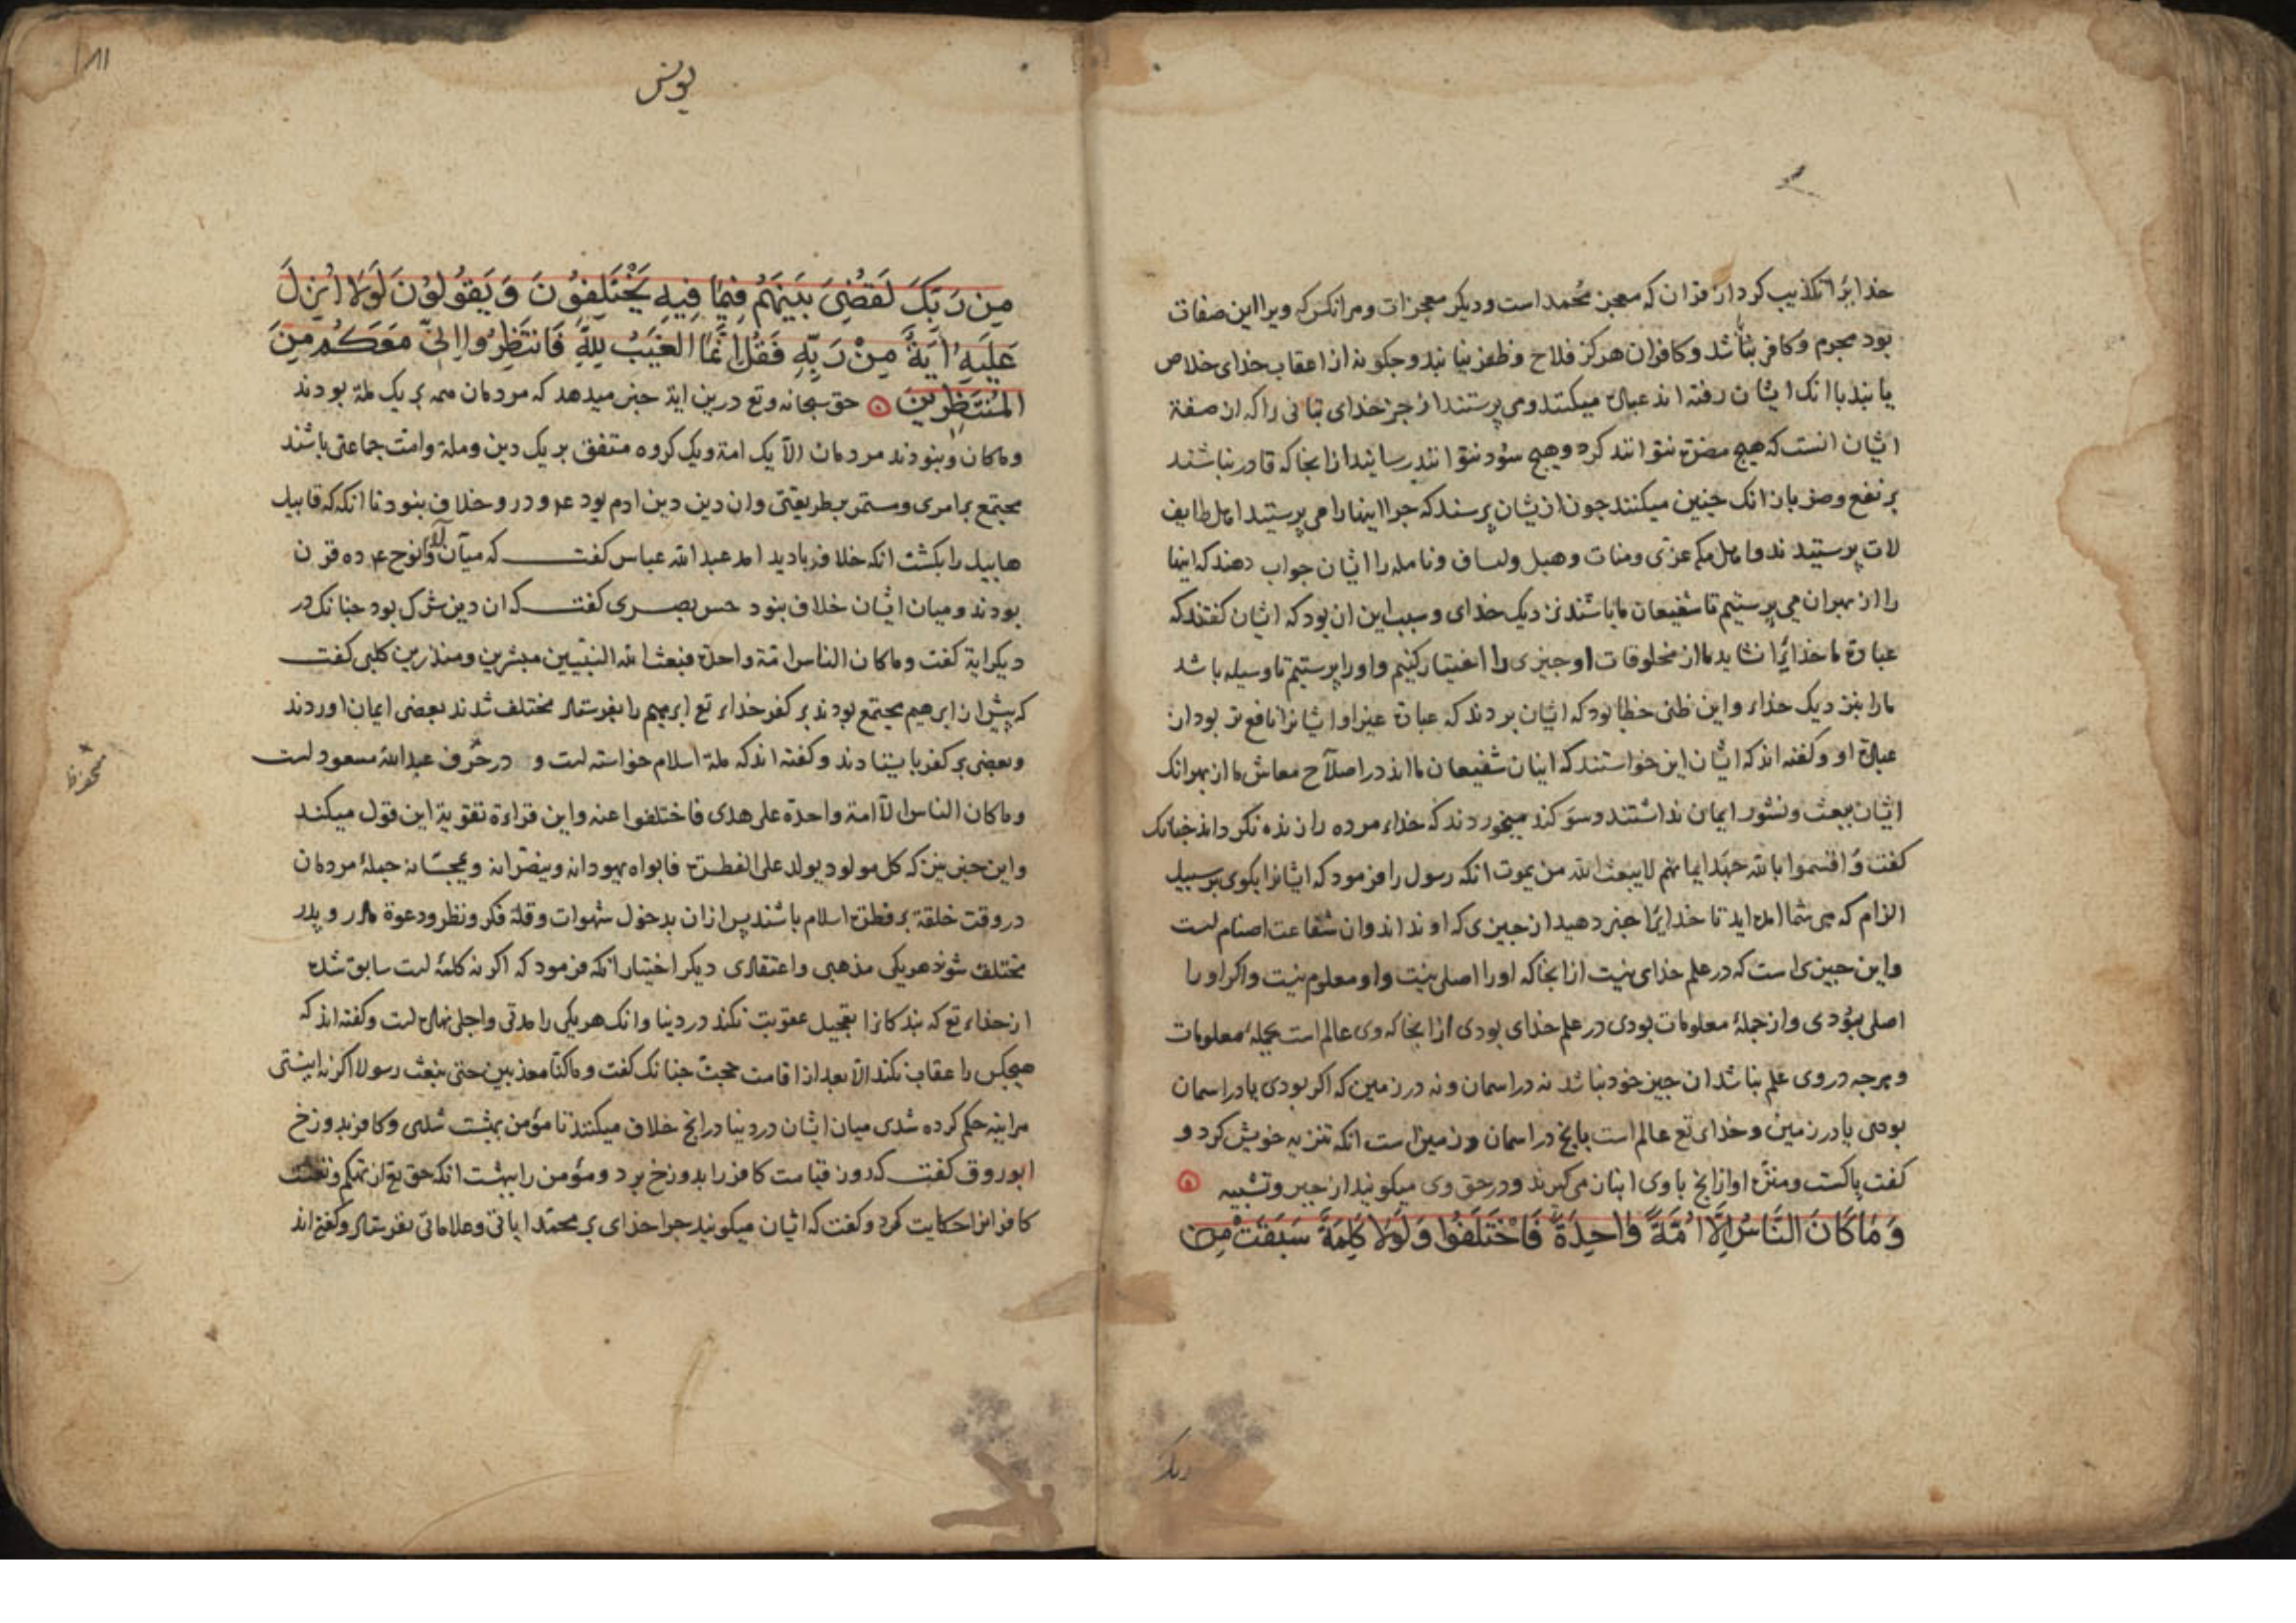 خدایرا تکذیب کرد از قران که معجز محمد است ودیکر معجزات ومر انکس که ویرا این صفات
بود مجرم وکافر باشد وکافران هرکز فلاح وظفر نیابند وجکونه از عقاب خدای خلاص
یابند با انک ایشان رفته اند عبادت میکنند ومی پرستند از جز خدای بتانی را که ان صفة
ایشان انست که هیچ مضرت نتوانند کرد وهیج سود نتوانند رسانید از انجا که قادر نباشند
بر نفع وضر بازانک جنین میکنند جون ازیشان پرسند که جرا اینها را می پرستید اهل طایف
لات پرستیدند واهل مکه عزی ومنات وهبل ولساف ونایله را ایشان جواب دهند که اینها
را از بهر ان می پرستیم تا شفیعان ما باشند نزدیک خدای وسبب این ان بود که ایشان کفتند که
عبادة ما خدایرا نشاید ما از مخلوقات او جیزی را اختیار کنیم واورا پرستیم تا وسیله باشد
مارا بنزدیک خداء واین ظنی خطا بود که ایشان بردند که عبادة غیر او ایشانرا نافع تر بود از
عبادة او وکفته اند که ایشان این خواستند که اینان شفیعان مااند در اصلاح معاش ما از بهر انک
ایشان ببعث ونشور ایمان نداشتند وسوکند میخوردند که خداء مرده را زنده نکرداند جنانک
کفت واقسموا بالله جهد ایمانهم لا یبعث الله من یموت انکه رسول را فرمود که ایشانرا بکوی بر سبیل
الزام که می شما امده اید تا خدایرا خبر دهید از جیزی که او نداند وان شفاعت اصنام است
واین جیزی است که در علم خدای نیست از انجا که اورا اصلی نیست واو معلوم نیست واکر اورا
اصلی بودی واز جملهٔ معلومات بودی در علم خدای بودی از انجا که وی عالم است بجملهٔ معلومات
وهرجه در وی علم نباشد ان جیز خود نباشد نه در اسمان ونه در زمین که اکر بودی یا در اسمان
بودی یا در زمین وخدای تع عالم است بانج در اسمان وزمین است انکه تنزیه خویش کرد و
کفت پاکست ومنزه او از انج با وی انبازمی کیرند ودر حق وی میکویند از جبر وتشبیه
وَمَا كَانَ النَّاسُ اِلَّا اُمَّةً وَاحِدَةً فَاخْتَلَفُوا وَلَوْلَا كَلِمَةٌ سَبَقَتْ مِنْ
دیکر
۱۸۱
یونس
مِن رَبِّكَ لَقُضِيَ بَيْنَهُمْ فِيمَا فِيهِ يَخْتَلِفُونَ وَيَقُولُونَ لَوْلَا اُنْزِلَ
عَلَيْهِ اٰيَةٌ مِنْ رَبِّهِ فَقُلْ اِنَّمَا الْغَيْبُ لِلّٰهِ فَانْتَظِرُوا اِنِّي مَعَكُمْ مِنَ
الْمُنْتَظِرِينَ حق سبحانه وتع درین ایة خبر میدهد که مردمان همه بر یک ملة بودند
وماکان ونبودند مردمان الا یک امة ویک کروه متفق بر یک دین وملة وامت جماعتی باشند
مجتمع بر امری ومستمر بر طریقتی وان دین دین ادم بود ع ودر و خلاف نبود تا انکه که قابیل
هابیل را بکشت انکه خلاف بادید امد عبد الله عباس کفت که میان ادم ونوح ع ده قرن
بودند ومیان ایشان خلاف نبود حسن بصری کفت که ان دین شرک بود جنانک در
دیکر ایة کفت وماکان الناس امة واحدة فبعث الله النبیین مبشرین ومنذرین کلبی کفت
که پیش از ابرهیم مجتمع بودند بر کفر خداء تع ابرهیم را بفرستاد مختلف شدند بعضی ایمان اوردند
وبعضی بر کفر باستادند وکفته اند که ملة اسلام خواسته است و در حرف عبد الله مسعود است
وماکان الناس الا امة واحدة علی هدی فاختلفوا عنه واین قراءة تقویة این قول میکند
واین خبر نیز که کل مولود یولد علی الفطرة فابواه یهودانه وینصرانه ویمجسانه جملهٔ مردمان
در وقت خلقة بر فطرة اسلام باشند پس ازان بدخول شهوات وقلة فکر ونظر ودعوة مادر وپدر
مختلف شوند هریکی مذهبی واعتقادی دیکر اختیار انکه فرمود که اکر نه کلمهٔ است سابق شده
از خداء تع که بندکانرا بتعجیل عقوبت نکند در دنیا وانک هریکی را مدتی واجلی نهاده است وکفته اند که
هیجکس را عقاب نکند الا بعد از اقامت حجت جنانک کفت وماکنا معذبین حتی نبعث رسولا اکر نه اینستی
هراینه حکم کرده شدی میان ایشان در دنیا در انج خلاف میکنند تا مؤمن ببهشت شدی وکافر بدوزخ
ابوروق کفت که روز قیامت کافر را بدوزخ برد ومؤمن را ببهشت انکه حق تع از تهکم وتعنت
کافران حکایت کرد وکفت که ایشان میکویند جرا خدای بر محمد ایاتی وعلاماتی نفرستاد وکفته اند